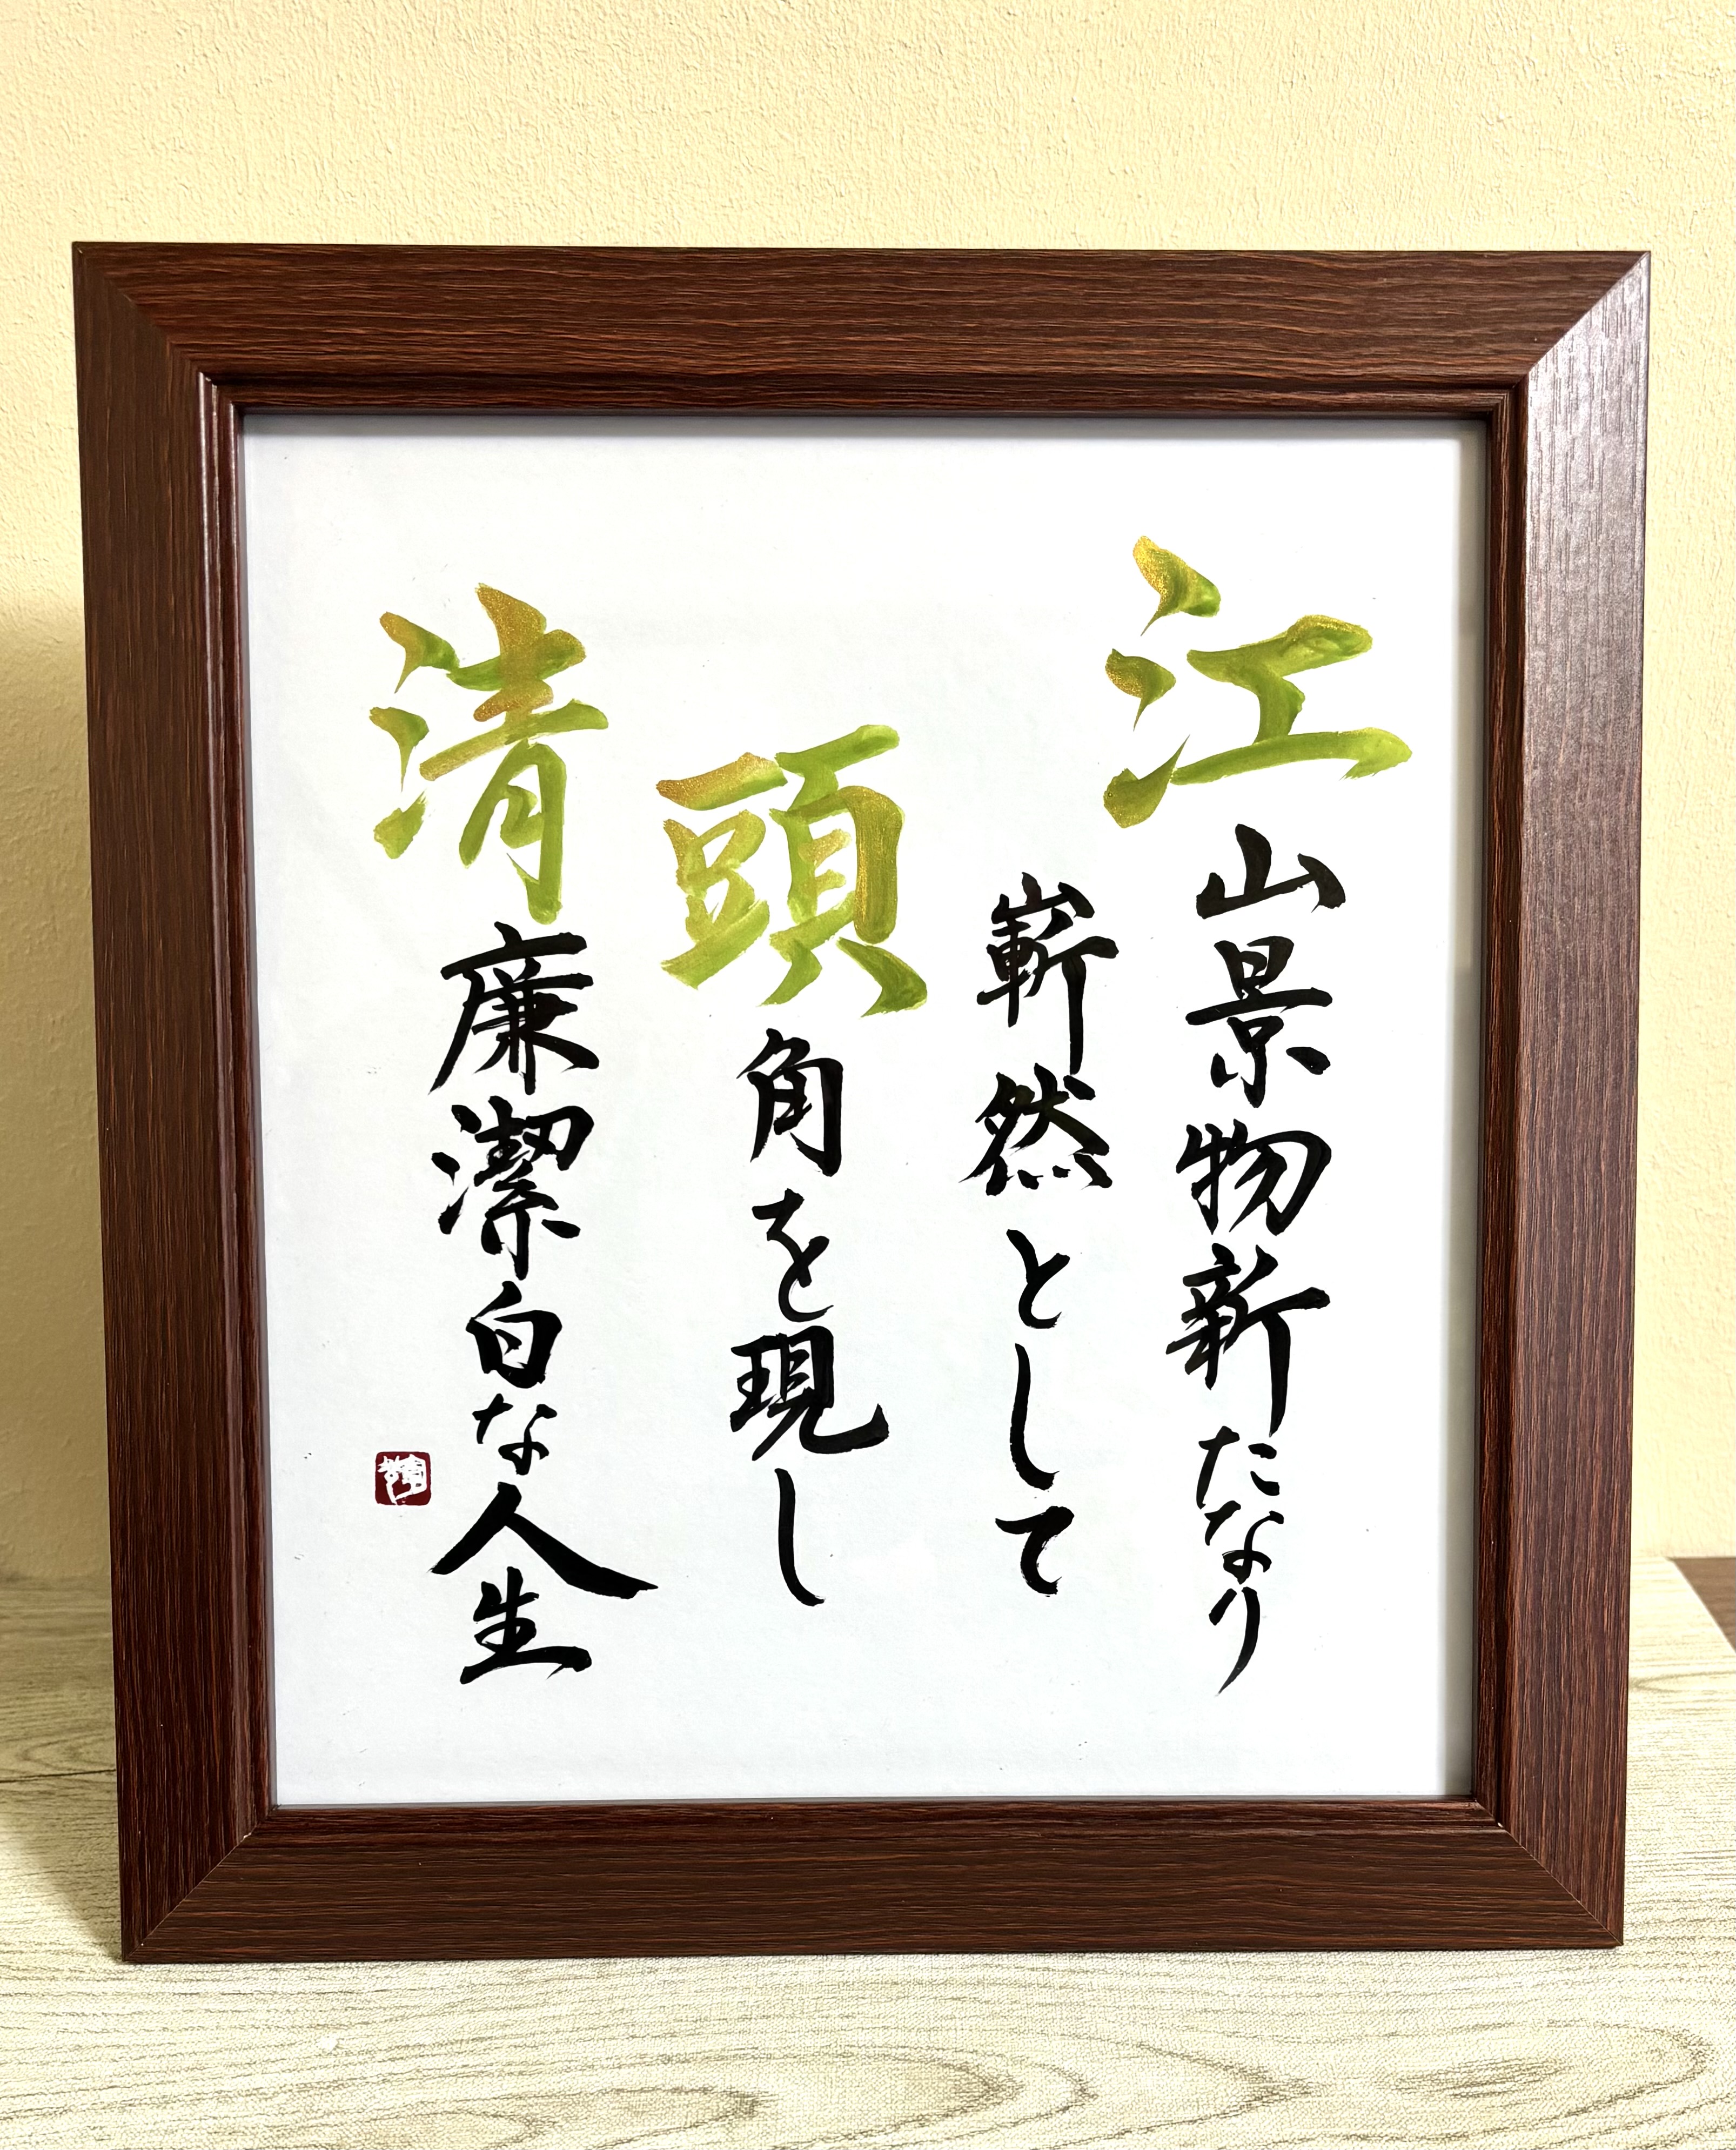 江山景物新たなり
嶄然として
頭角を現し
清廉潔白な人生